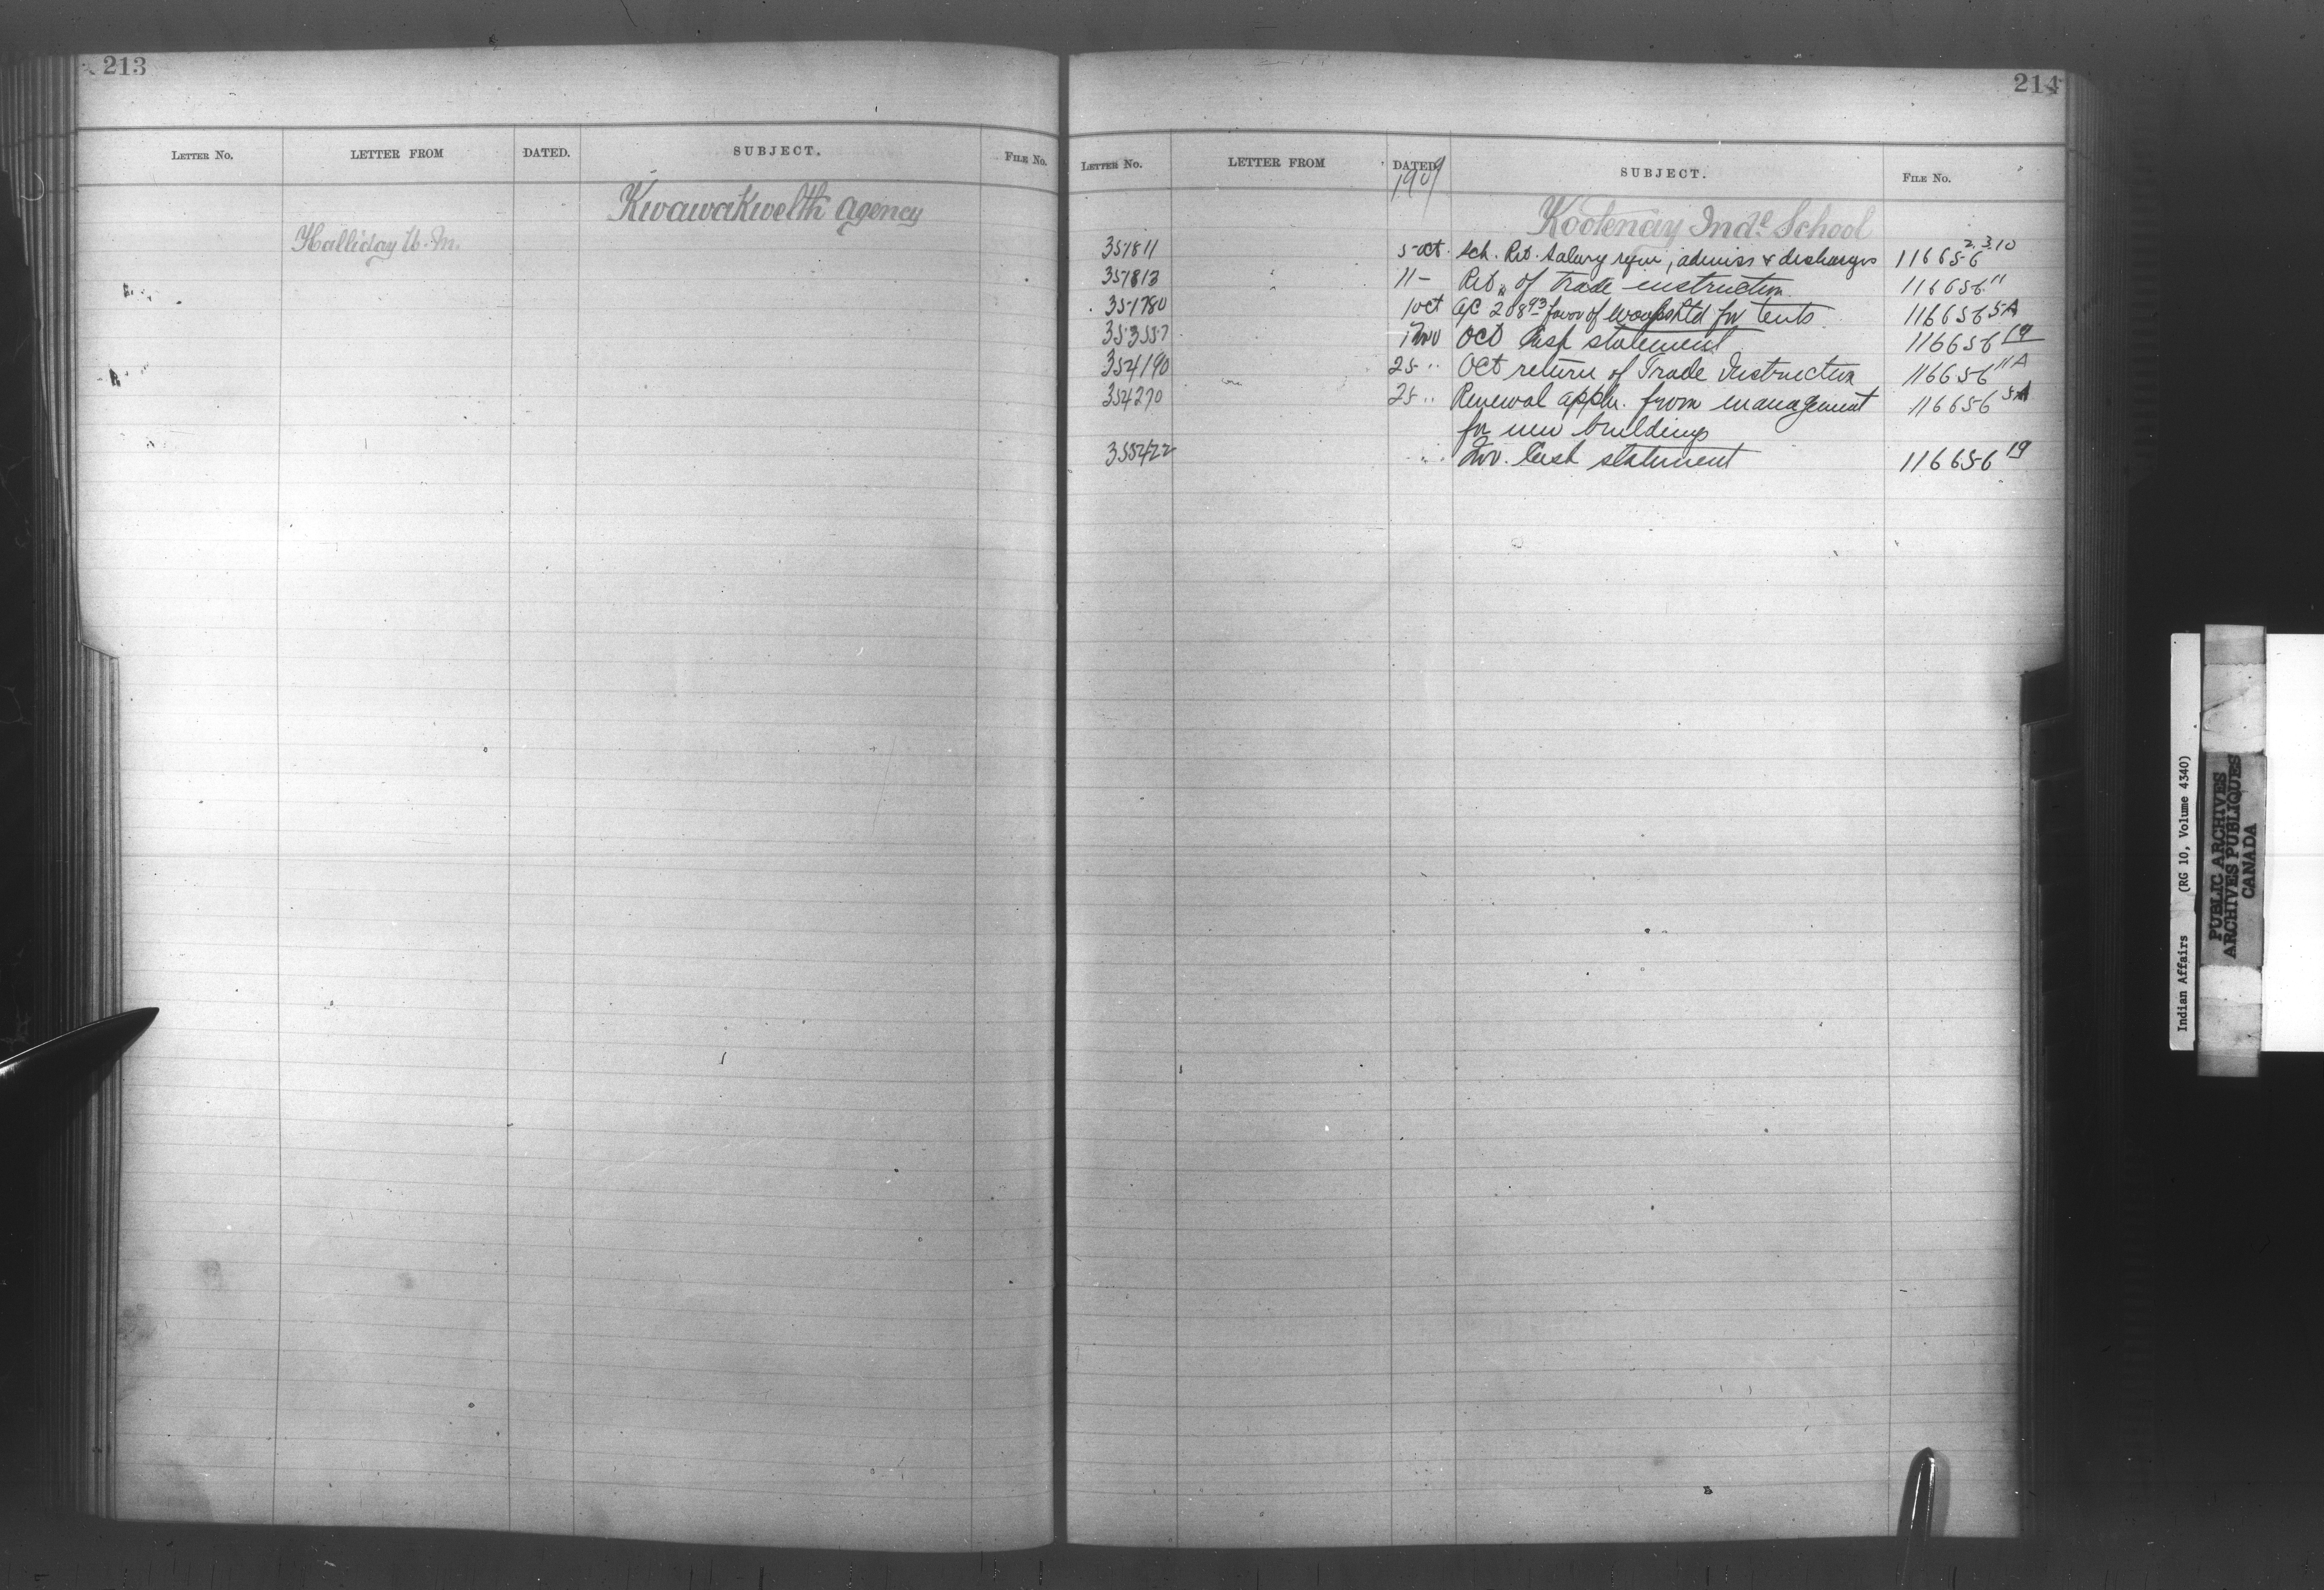 213
LETTER NO. LETTER FROM DATED. SUBJECT. FILE NO.
Kwawakwelth Agency
Halliday W. M.
214
LETTER NO. LETTER FROM DATED. SUBJECT. FILE NO.
1909
Kootenay Indl School
351811 5 Oct. Sch. Ret. Salary requi, admiss & discharges 116656 2.3.10
351813 11 - Ret. of Trade instruction 116656 11
351780 1 Oct a/c 208 93 favor of Ltd for tents 116656 5A
353557 1 Nov Oct Cash statement 116656 19
354190 25 " Oct return of Trade Instruction 116656 11A
354270 25 " Renewal appln. from management 116656 5A
for new buildings
355422 " Nov. Cash statement 116656 19
Indian Affairs (RG 10, Volume 4340)
PUBLIC ARCHIVES
ARCHIVES PUBLIQUES
CANADA